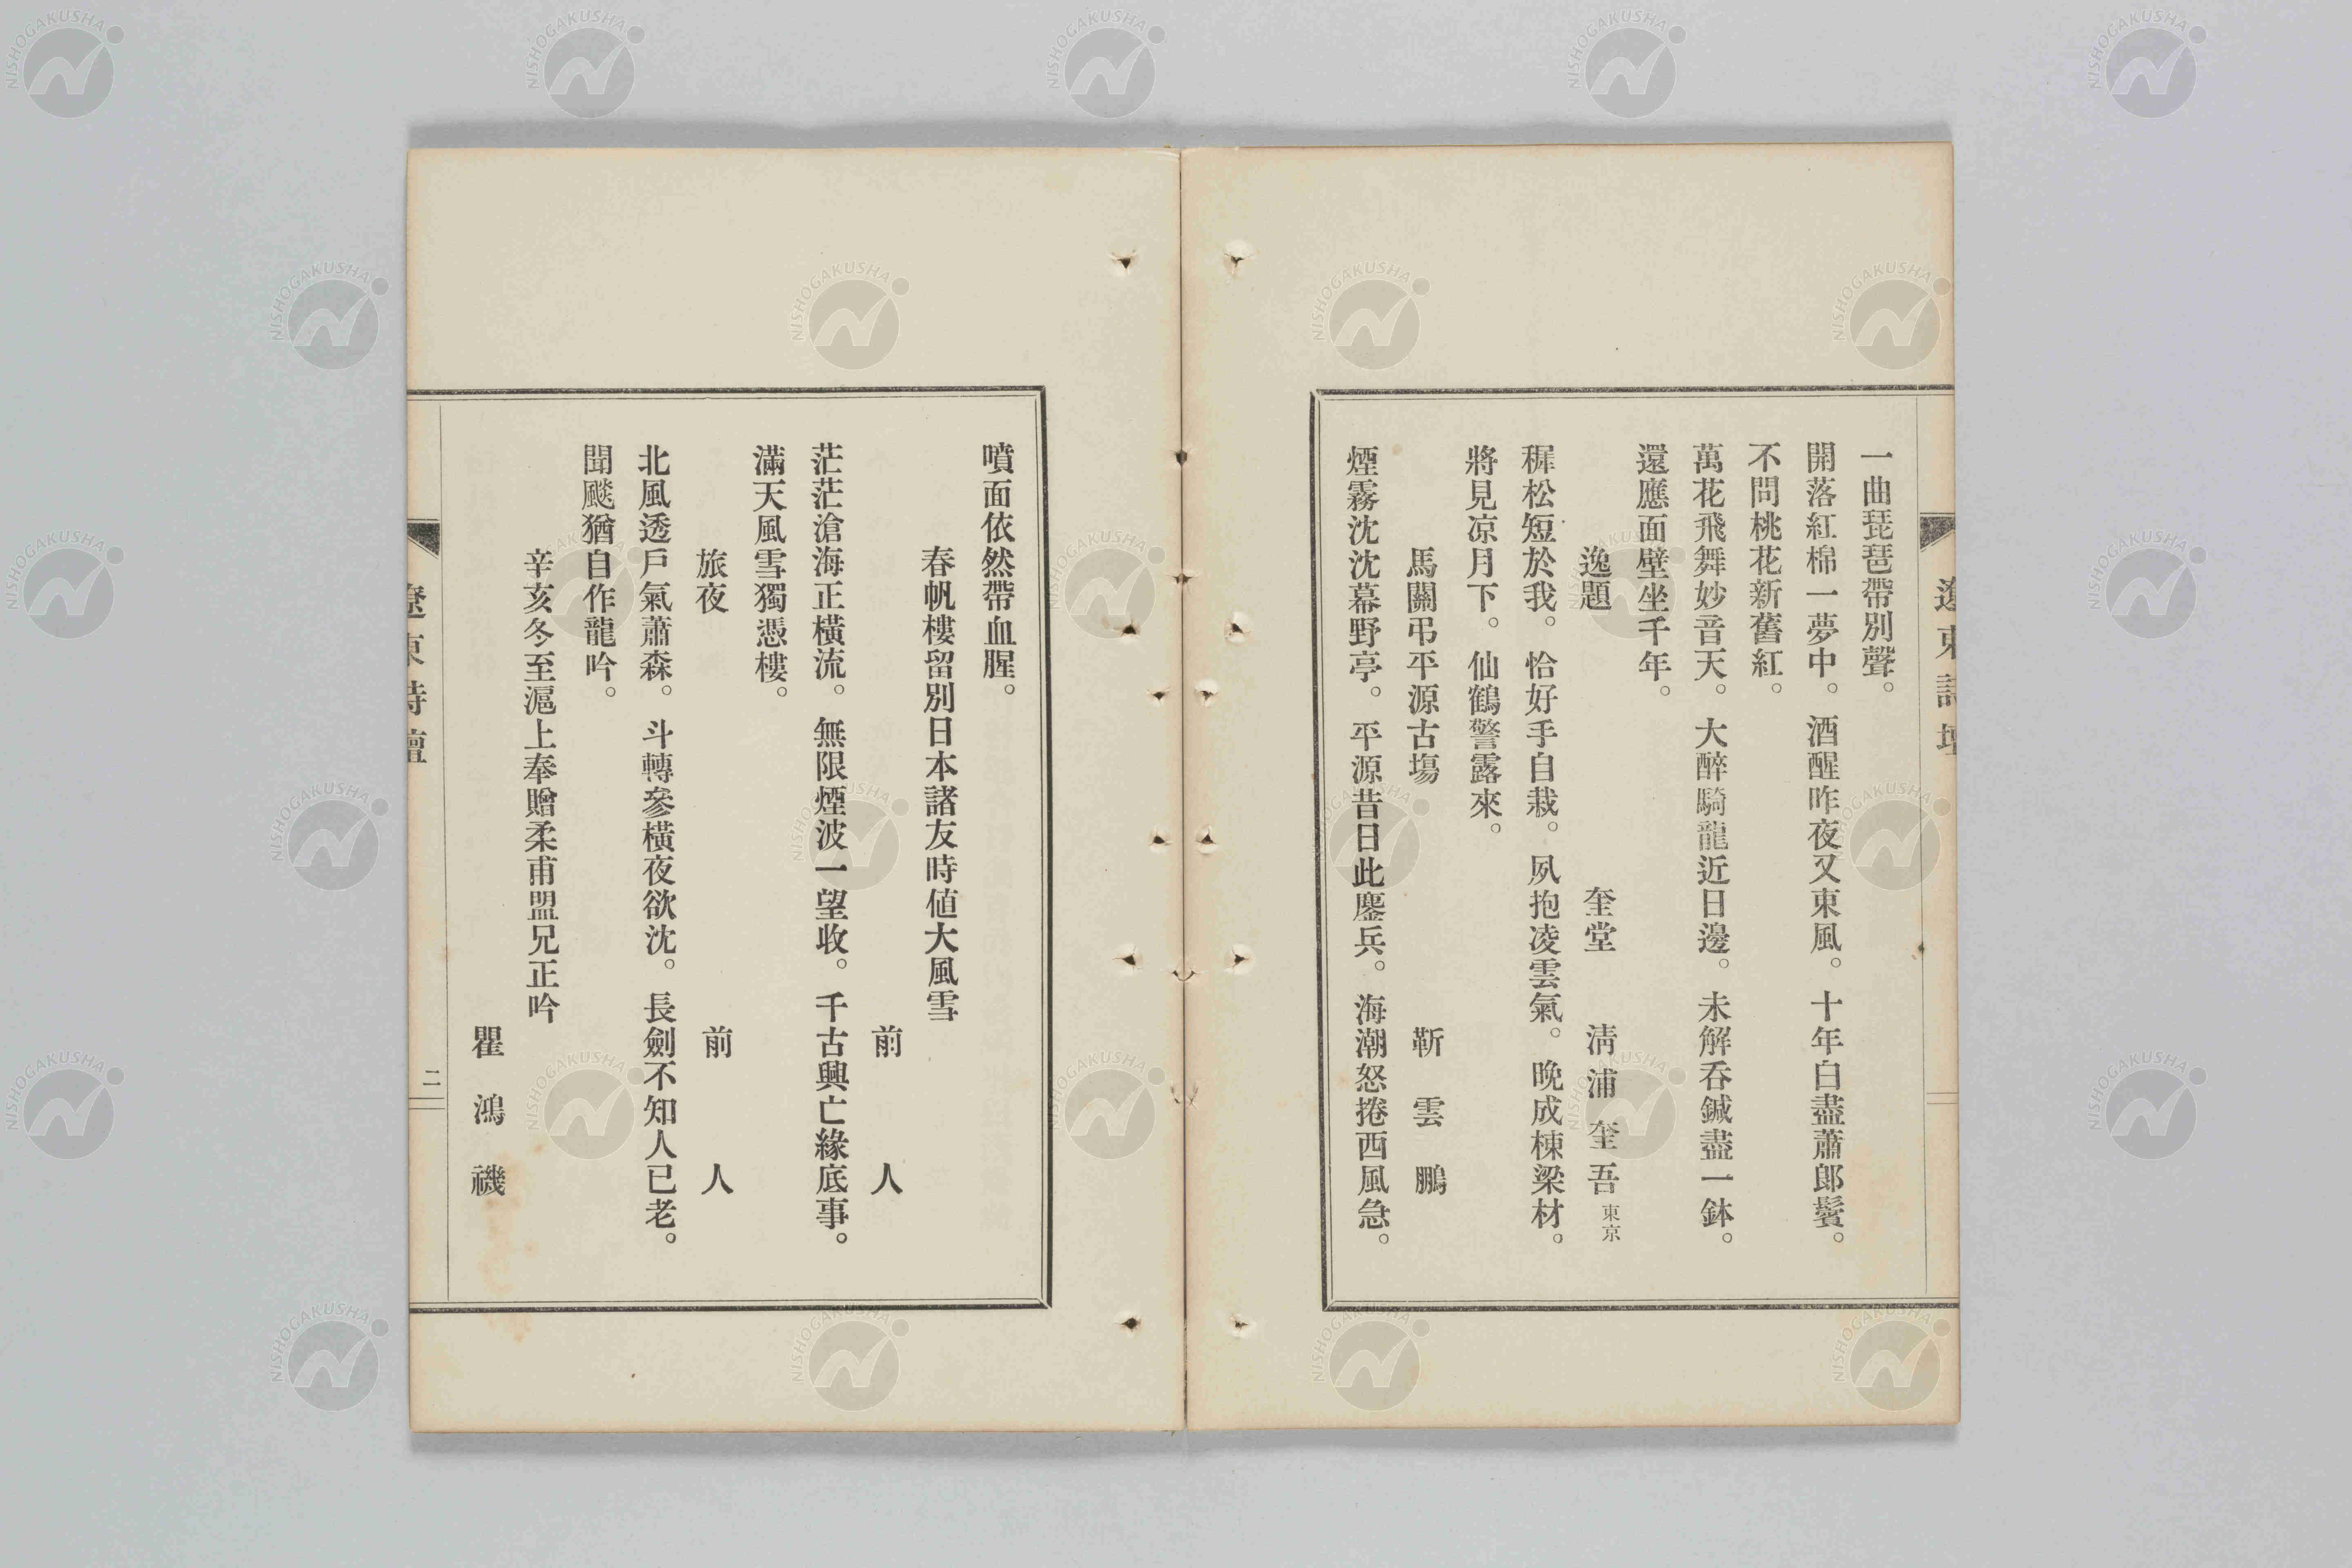 遼東詩壇
一曲琵琶帶別聲。
開落紅棉一夢中。酒醒昨夜又東風。十年白盡蕭郞鬢。
不問桃花新舊紅。
萬花飛舞妙音天。大醉騎龍近日邊。未解呑鍼盡一鉢。
還應面壁坐千年。
逸題　奎堂　淸浦奎吾 東京
穉松短於我。恰好手自栽。夙抱凌雲氣。晩成棟梁材。
將見凉月下。仙鶴警露來。
馬關弔平源古塲　靳雲鵬
煙霧沈沈幕野亭。平源昔日此鏖兵。海潮怒捲西風急。
噴面依然帶血腥。
春帆樓留別日本諸友時値大風雪
前人
茫茫滄海正橫流。無限煙波一望收。千古興亡緣底事。
滿天風雪獨憑樓。
旅夜　前人
北風透戶氣蕭森。斗轉參橫夜欲沈。長劍不知人已老。
聞颷猶自作龍吟。
辛亥冬至滬上奉贈柔甫盟兄正吟
瞿鴻禨
遼東詩壇
二
NISHOGAKUSHA